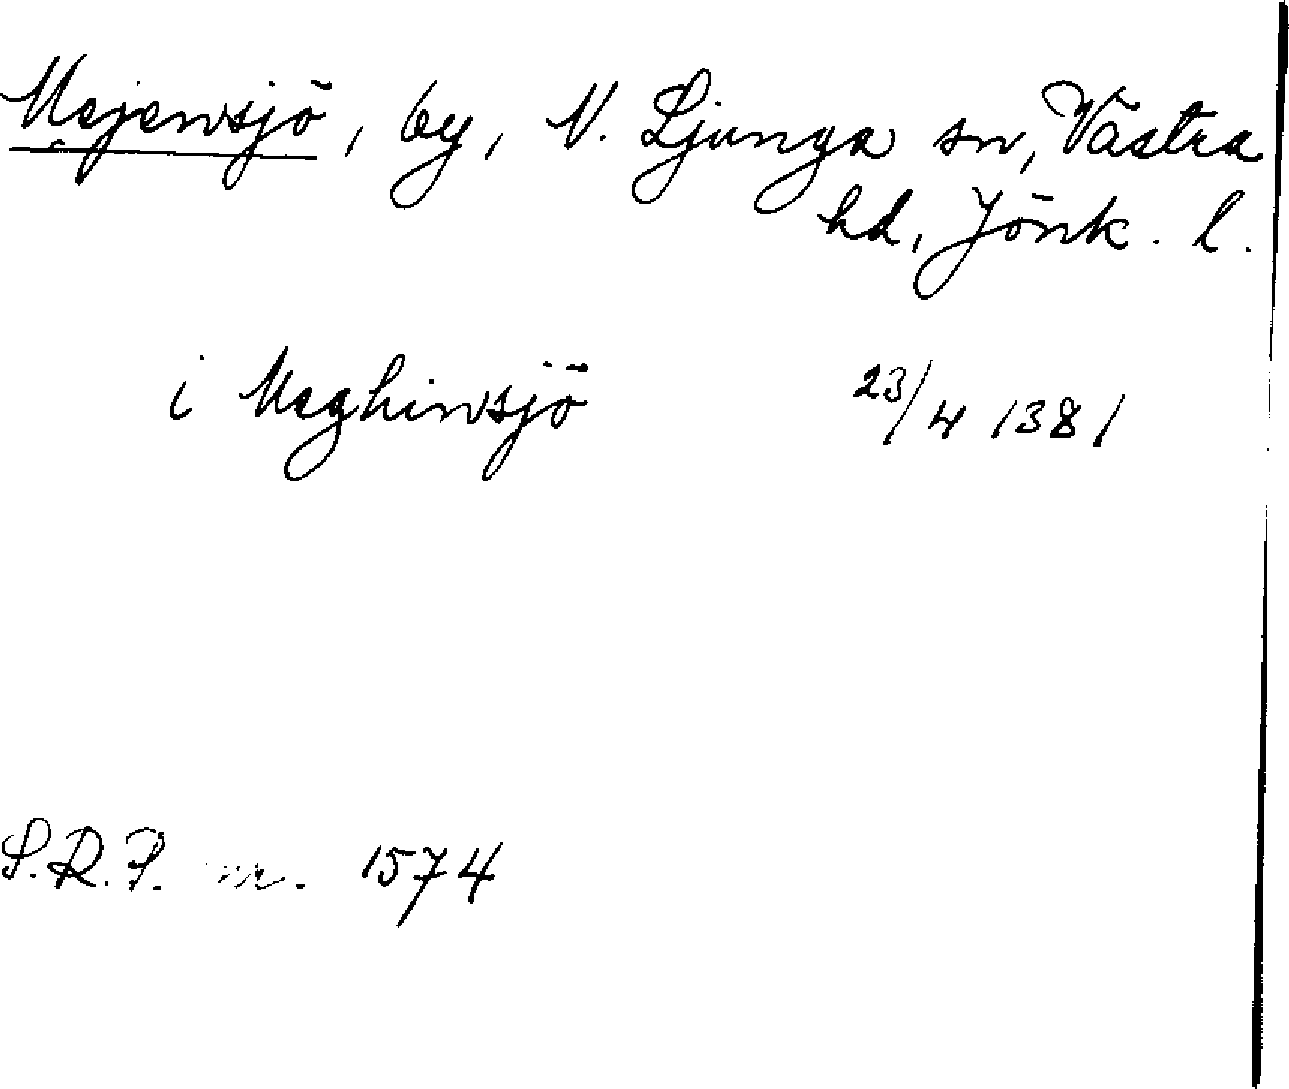 Mejensjö, by, N. Ljunga sn, Västra
hd, Jönk. l.
i Meghinsjö 23/4 1381
S.R.P. nr. 1574